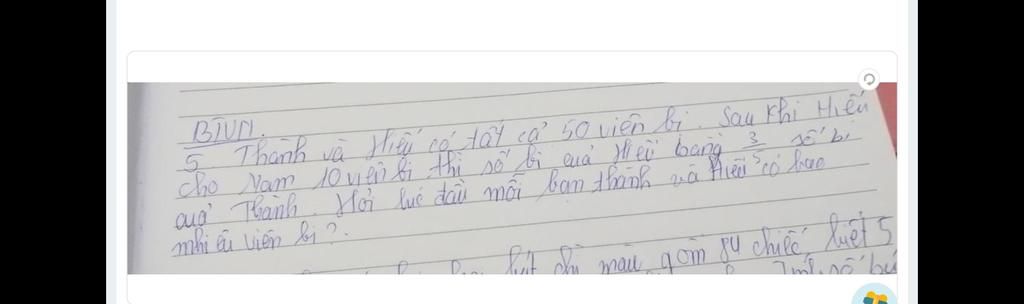 BTVN.
5 Thành và Hiếu có tất cả 50 viên bi. Sau khi Hiếu
cho Nam 10 viên bi thì số bi của Hiếu bằng 3/5 số bi
của Thành. Hỏi lúc đầu mỗi bạn thành và Hiếu có bao
nhiêu viên bi?.
bút chì màu gồm 84 chiếc
số bú